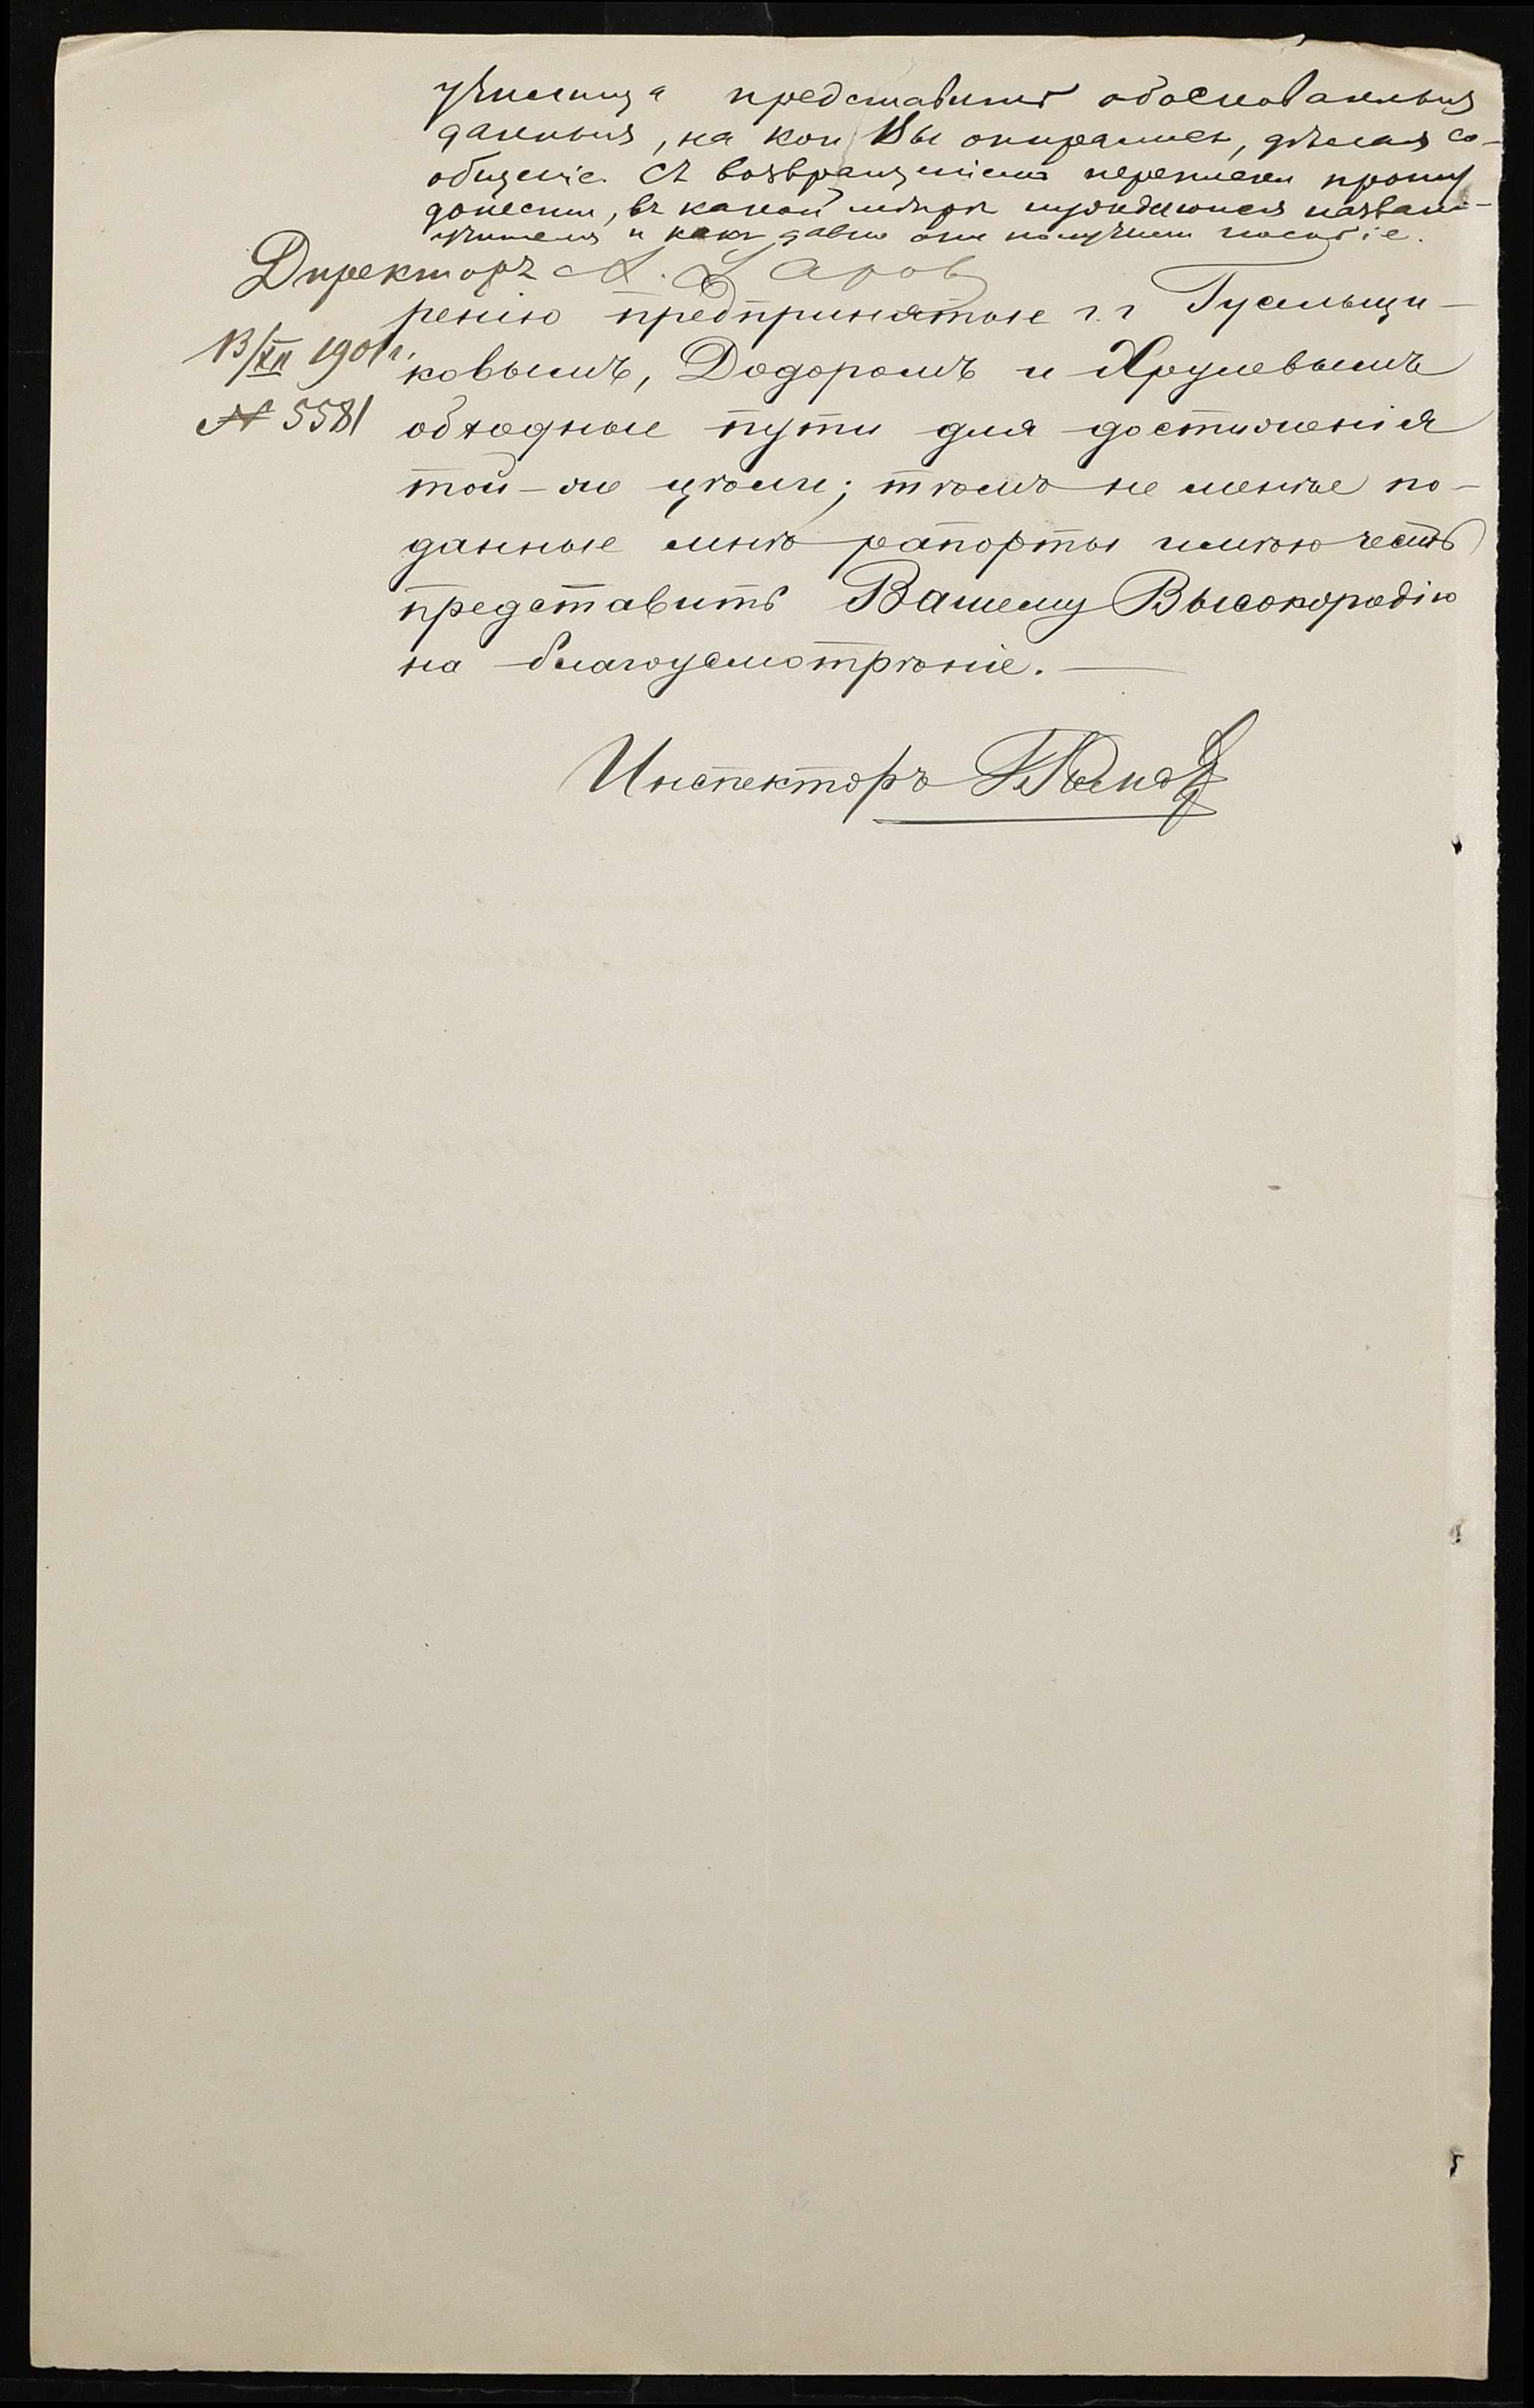 училища представить обоснованныя
данныя, на кои Вы опирались, дѣлая со-
общеніе. Съ возвращеніемъ переписки прошу
донести, въ какой мѣрѣ нуждаются назван-
учителя и какъ давно они получили пособіе.
Директоръ А.
13/XII 1901 г.
№ 5581
ренію предпринятые г.г Гусельщи-
ковымъ, Додоромъ и Хрулевымъ
обходные пути для достиженія
той-же цѣли; тѣмъ не менѣе по-
данные мнѣ рапорты имѣю честь
представить Вашему Высокородію
на благоусмотрѣніе. —
Инспекторъ